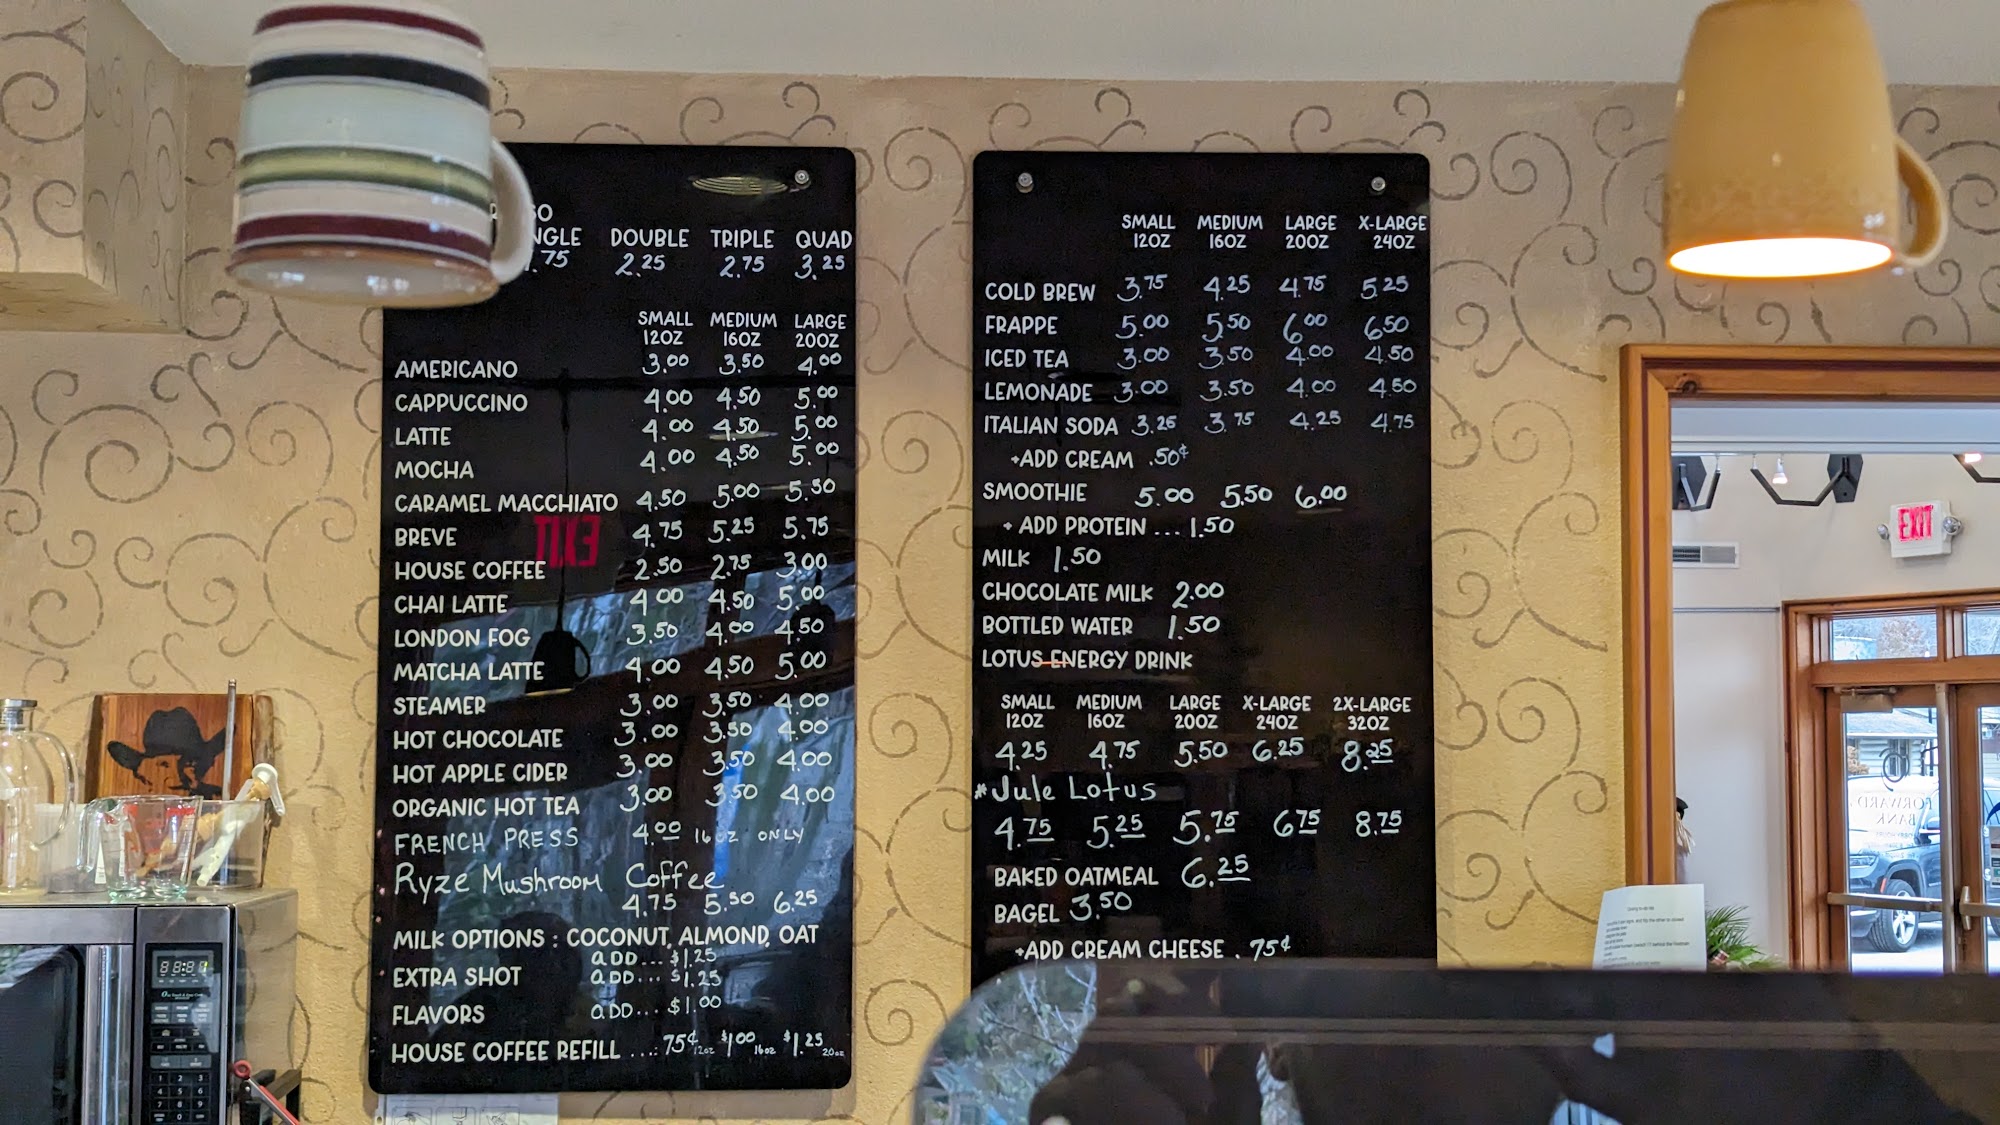 DOUBLE TRIPLE QUAD
.75 2.25 2.75 3.25
SMALL MEDIUM LARGE
12OZ 16OZ 20OZ
AMERICANO 3.00 3.50 4.00
CAPPUCCINO 4.00 4.50 5.00
LATTE 4.00 4.50 5.00
MOCHA 4.00 4.50 5.00
CARAMEL MACCHIATO 4.50 5.00 5.50
BREVE 4.75 5.25 5.75
HOUSE COFFEE 2.50 2.75 3.00
CHAI LATTE 4.00 4.50 5.00
LONDON FOG 3.50 4.00 4.50
MATCHA LATTE 4.00 4.50 5.00
STEAMER 3.00 3.50 4.00
HOT CHOCOLATE 3.00 3.50 4.00
HOT APPLE CIDER 3.00 3.50 4.00
ORGANIC HOT TEA 3.00 3.50 4.00
FRENCH PRESS 4.00 16oz ONLY
Ryze Mushroom Coffee
4.75 5.50 6.25
MILK OPTIONS : COCONUT, ALMOND, OAT
ADD... $1.25
EXTRA SHOT ADD... $1.25
FLAVORS ADD... $1.00
HOUSE COFFEE REFILL ...: 75¢ 12oz $1.00 16oz $1.25 20oz
SMALL MEDIUM LARGE X-LARGE
12OZ 16OZ 20OZ 24OZ
COLD BREW 3.75 4.25 4.75 5.25
FRAPPE 5.00 5.50 6.00 6.50
ICED TEA 3.00 3.50 4.00 4.50
LEMONADE 3.00 3.50 4.00 4.50
ITALIAN SODA 3.25 3.75 4.25 4.75
+ADD CREAM .50¢
SMOOTHIE 5.00 5.50 6.00
+ ADD PROTEIN ... 1.50
MILK 1.50
CHOCOLATE MILK 2.00
BOTTLED WATER 1.50
LOTUS ENERGY DRINK
SMALL MEDIUM LARGE X-LARGE 2X-LARGE
12OZ 16OZ 20OZ 24OZ 32OZ
4.25 4.75 5.50 6.25 8.25
*Jule Lotus
4.75 5.25 5.75 6.75 8.75
BAKED OATMEAL 6.25
BAGEL 3.50
+ADD CREAM CHEESE . 75¢
EXIT
FORWARD
BANK